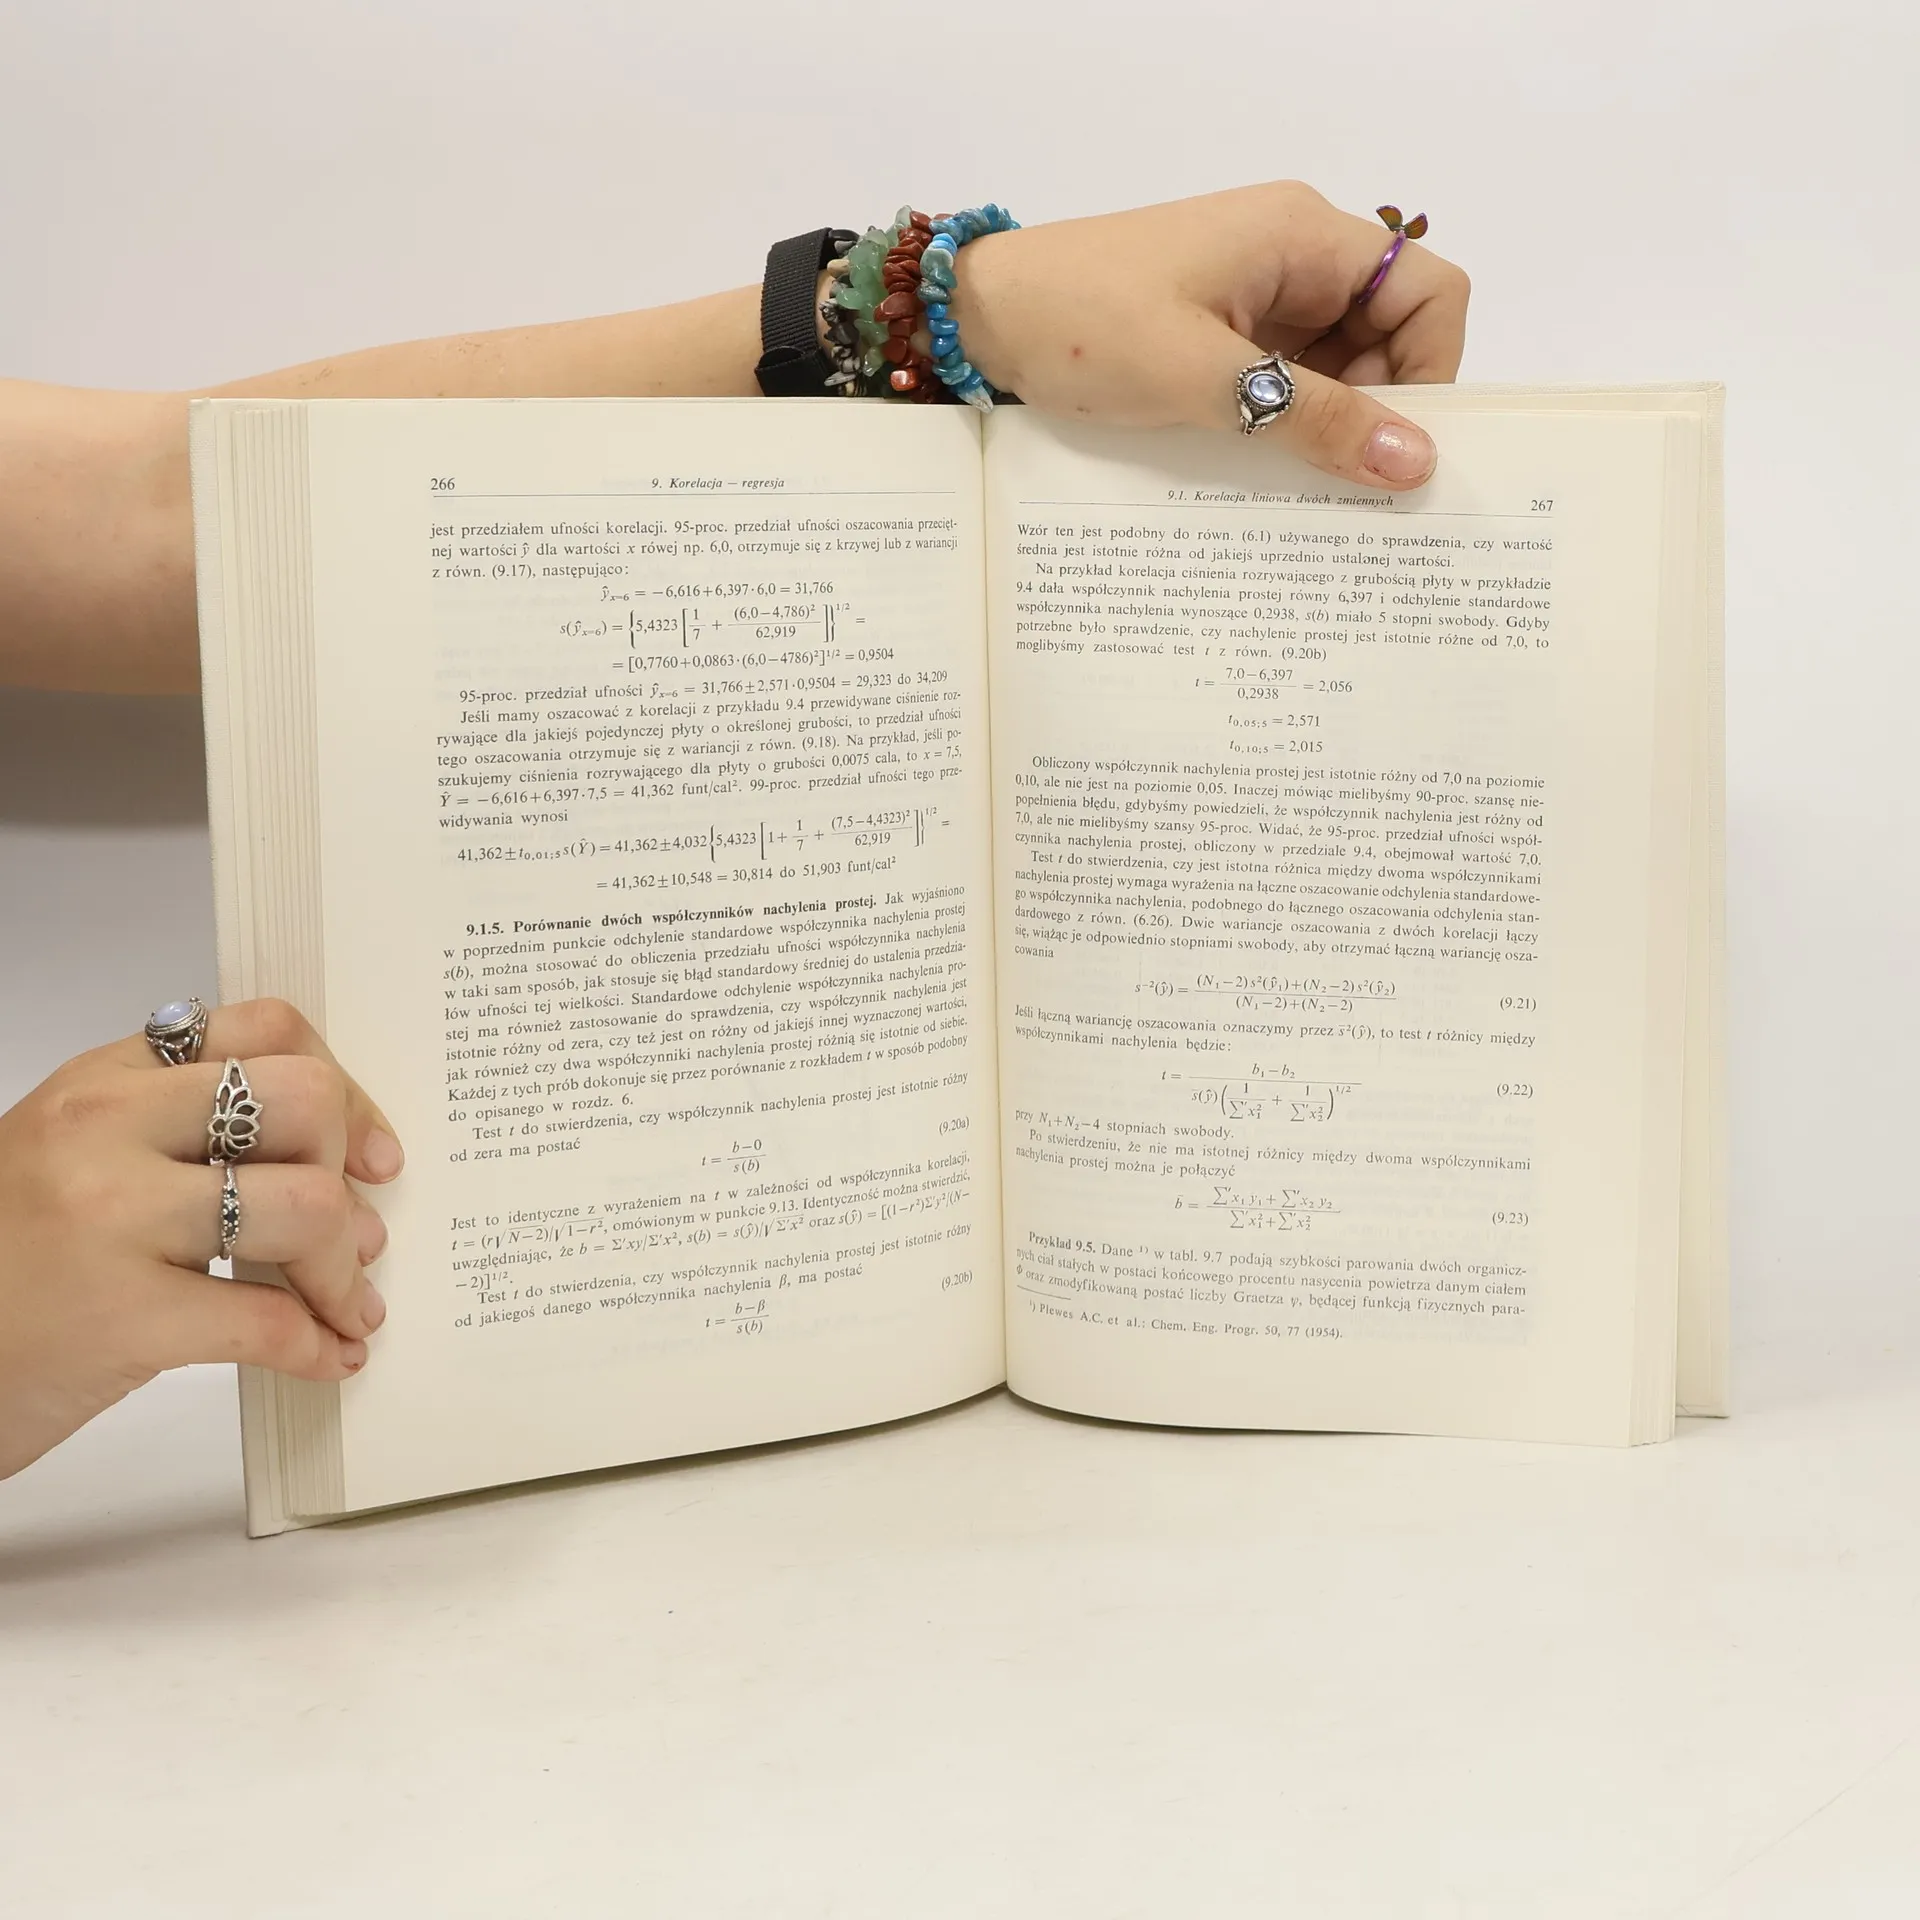 266
9. Korelacja — regresja
jest przedziałem ufności korelacji. 95-proc. przedział ufności oszacowania przecięt-
nej wartości ŷ dla wartości x rówej np. 6,0, otrzymuje się z krzywej lub z wariancji
z równ. (9.17), następująco:
ŷₓ₌₆ = −6,616+6,397·6,0 = 31,766
s(ŷₓ₌₆) = {5,4323 [1/7 + (6,0−4,786)²/62,919]}^1/2 =
= [0,7760+0,0863·(6,0−4786)²]^1/2 = 0,9504
95-proc. przedział ufności ŷₓ₌₆ = 31,766±2,571·0,9504 = 29,323 do 34,209
Jeśli mamy oszacować z korelacji z przykładu 9.4 przewidywane ciśnienie roz-
rywające dla jakiejś pojedynczej płyty o określonej grubości, to przedział ufności
tego oszacowania otrzymuje się z wariancji z równ. (9.18). Na przykład, jeśli po-
szukujemy ciśnienia rozrywającego dla płyty o grubości 0,0075 cala, to x = 7,5,
Ŷ = −6,616+6,397·7,5 = 41,362 funt/cal². 99-proc. przedział ufności tego prze-
widywania wynosi
41,362±t₀,₀₁;₅s(Ŷ) = 41,362±4,032{5,4323 [1+ 1/7 + (7,5−4,4323)²/62,919]}^1/2 =
= 41,362±10,548 = 30,814 do 51,903 funt/cal²
9.1.5. Porównanie dwóch współczynników nachylenia prostej. Jak wyjaśniono
w poprzednim punkcie odchylenie standardowe współczynnika nachylenia prostej
s(b), można stosować do obliczenia przedziału ufności współczynnika nachylenia
w taki sam sposób, jak stosuje się błąd standardowy średniej do ustalenia przedzia-
łów ufności tej wielkości. Standardowe odchylenie współczynnika nachylenia pro-
stej ma również zastosowanie do sprawdzenia, czy współczynnik nachylenia jest
istotnie różny od zera, czy też jest on różny od jakiejś innej wyznaczonej wartości,
jak również czy dwa współczynniki nachylenia prostej różnią się istotnie od siebie.
Każdej z tych prób dokonuje się przez porównanie z rozkładem t w sposób podobny
do opisanego w rozdz. 6.
Test t do stwierdzenia, czy współczynnik nachylenia prostej jest istotnie różny
od zera ma postać
t = (b−0)/s(b) (9.20a)
Jest to identyczne z wyrażeniem na t w zależności od współczynnika korelacji,
t = (r√N−2)/√1−r², omówionym w punkcie 9.13. Identyczność można stwierdzić,
uwzględniając, że b = Σ′xy/Σ′x², s(b) = s(ŷ)/√Σ′x² oraz s(ŷ) = [(1−r²)Σ′y²/(N−
−2)]^1/2.
Test t do stwierdzenia, czy współczynnik nachylenia prostej jest istotnie różny
od jakiegoś danego współczynnika nachylenia β, ma postać
t = (b−β)/s(b) (9.20b)
9.1. Korelacja liniowa dwóch zmiennych
267
Wzór ten jest podobny do równ. (6.1) używanego do sprawdzenia, czy wartość
średnia jest istotnie różna od jakiejś uprzednio ustalonej wartości.
Na przykład korelacja ciśnienia rozrywającego z grubością płyty w przykładzie
9.4 dała współczynnik nachylenia prostej równy 6,397 i odchylenie standardowe
współczynnika nachylenia wynoszące 0,2938, s(b) miało 5 stopni swobody. Gdyby
potrzebne było sprawdzenie, czy nachylenie prostej jest istotnie różne od 7,0, to
moglibyśmy zastosować test t z równ. (9.20b)
t = (7,0−6,397)/0,2938 = 2,056
t₀,₀₅;₅ = 2,571
t₀,₁₀;₅ = 2,015
Obliczony współczynnik nachylenia prostej jest istotnie różny od 7,0 na poziomie
0,10, ale nie jest na poziomie 0,05. Inaczej mówiąc mielibyśmy 90-proc. szansę nie-
popełnienia błędu, gdybyśmy powiedzieli, że współczynnik nachylenia jest różny od
7,0, ale nie mielibyśmy szansy 95-proc. Widać, że 95-proc. przedział ufności współ-
czynnika nachylenia prostej, obliczony w przedziale 9.4, obejmował wartość 7,0.
Test t do stwierdzenia, czy jest istotna różnica między dwoma współczynnikami
nachylenia prostej wymaga wyrażenia na łączne oszacowanie odchylenia standardowe-
go współczynnika nachylenia, podobnego do łącznego oszacowania odchylenia stan-
dardowego z równ. (6.26). Dwie wariancje oszacowania z dwóch korelacji łączy
się, wiążąc je odpowiednio stopniami swobody, aby otrzymać łączną wariancję osza-
cowania
s⁻²(ŷ) = ((N₁−2)s²(ŷ₁)+(N₂−2)s²(ŷ₂))/((N₁−2)+(N₂−2)) (9.21)
Jeśli łączną wariancję oszacowania oznaczymy przez s̄²(ŷ), to test t różnicy między
współczynnikami nachylenia będzie:
t = (b₁−b₂)/(s̄(ŷ)(1/Σ′x₁² + 1/Σ′x₂²)^1/2) (9.22)
przy N₁+N₂−4 stopniach swobody.
Po stwierdzeniu, że nie ma istotnej różnicy między dwoma współczynnikami
nachylenia prostej można je połączyć
b̄ = (Σ′x₁y₁+Σ′x₂y₂)/(Σ′x₁²+Σ′x₂²) (9.23)
Przykład 9.5. Dane ¹⁾ w tabl. 9.7 podają szybkości parowania dwóch organicz-
nych ciał stałych w postaci końcowego procentu nasycenia powietrza danym ciałem
Φ oraz zmodyfikowaną postać liczby Graetza ψ, będącej funkcją fizycznych para-
¹⁾ Plewes A.C. et al.: Chem. Eng. Progr. 50, 77 (1954).